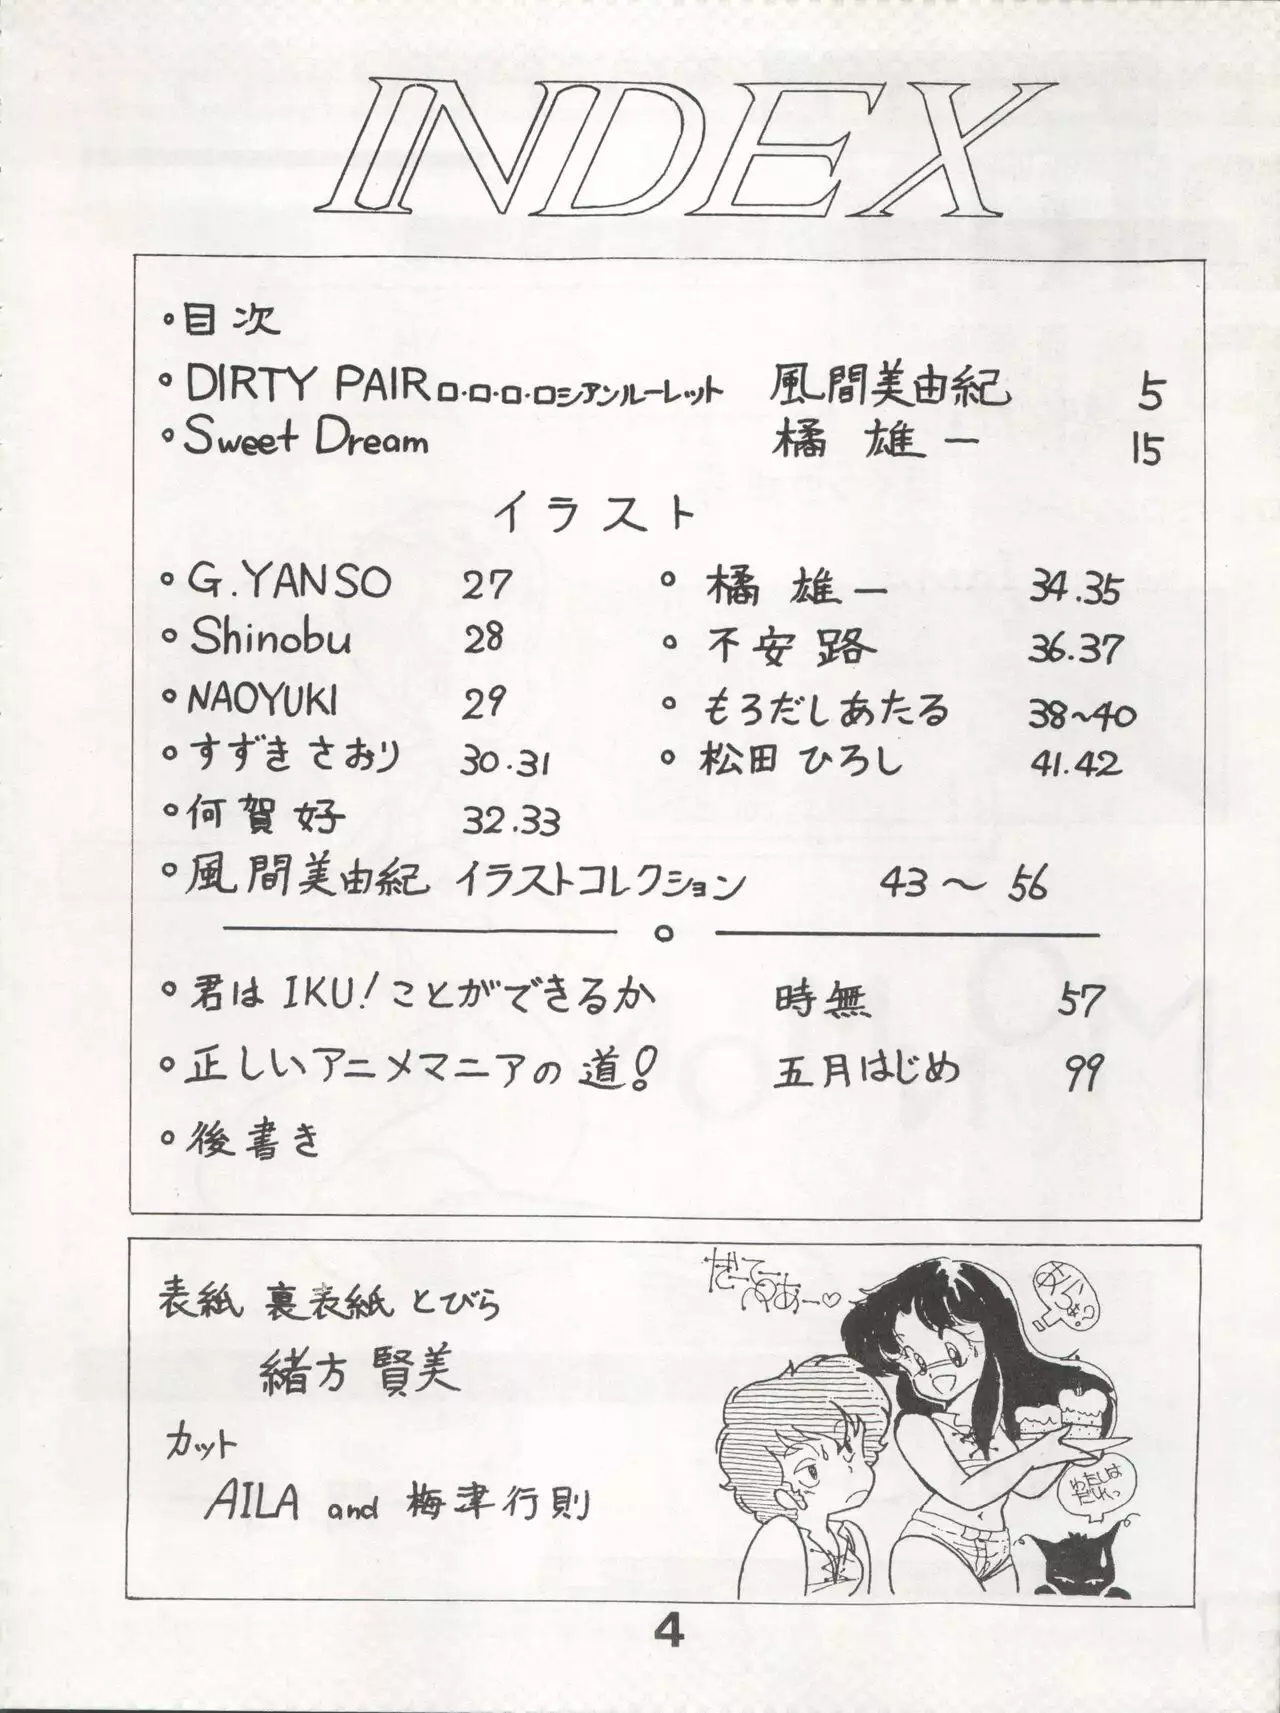 INDEX
・目次
・DIRTY PAIR ロ・ロ・ロ・ロシアンルーレット 風間美由紀 5
・Sweet Dream 橘 雄一 15
イラスト
・G.YANSO 27
・Shinobu 28
・NAOYUKI 29
・すずき さおり 30.31
・何賀 好 32.33
・橘 雄一 34.35
・不安 路 36.37
・もろだしあたる 38~40
・松田 ひろし 41.42
・風間美由紀 イラストコレクション 43~56
・君は IKU!ことができるか 時無 57
・正しいアニメマニアの道! 五月はじめ 99
・後書き
表紙 裏表紙 とびら
緒方 賢美
カット
AILA and 梅津行則
わたしは
4